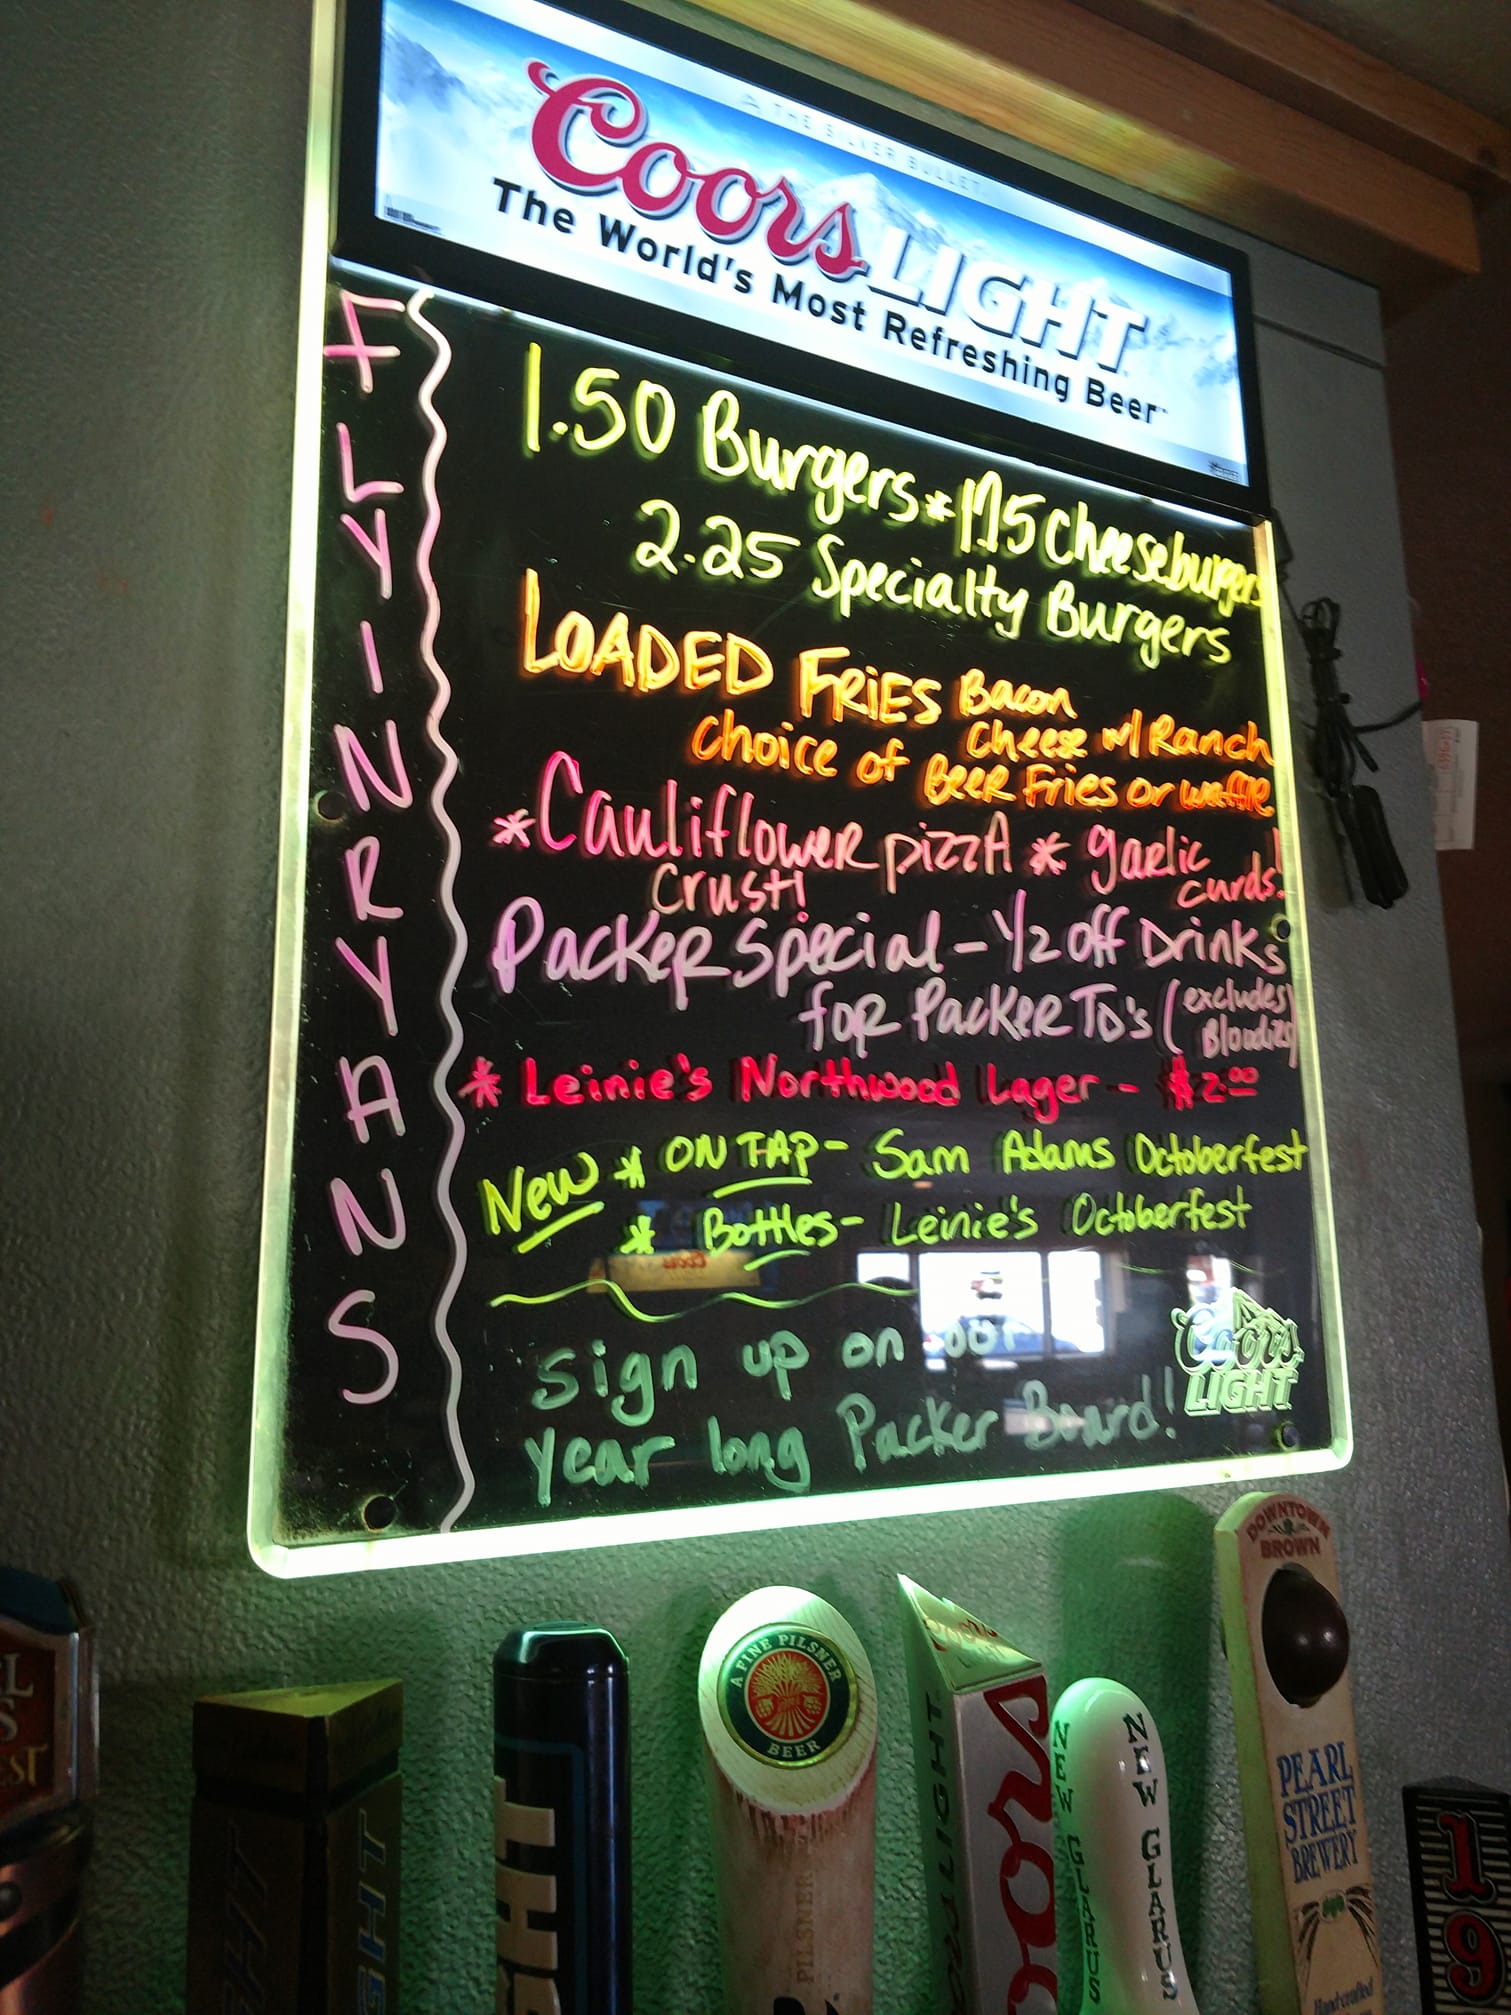 THE SILVER BULLET
Coors LIGHT
The World's Most Refreshing Beer
FLYINRYANS
1.50 Burgers * 1.75 Cheeseburgers
2.25 Specialty Burgers
LOADED FRIES Bacon
Cheese w/ Ranch
Choice of Beer Fries or waffle
* Cauliflower pizzA * garlic
Crust! curds!
Packer Special - 1/2 off Drinks
for Packer TD's (excludes
Bloodies)
* Leinie's Northwood Lager - $2.00
New * ON TAP - Sam Adams Octoberfest
* Bottles - Leinie's Octoberfest
sign up on our
year long Packer Board!
Coors
LIGHT
DOWNTOWN
BROWN
A FINE PILSNER
BEER
PILSNER
Coors
COORS LIGHT
NEW GLARUS
NEW GLARUS
PEARL
STREET
BREWERY
Handcrafted
19